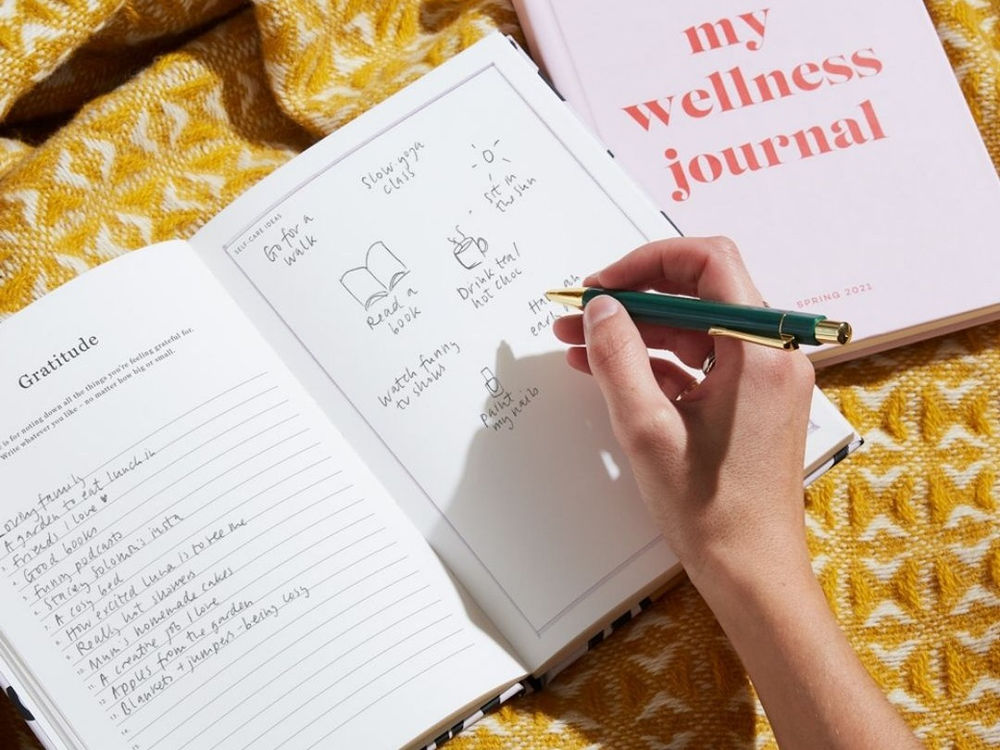 Gratitude
is for noting down all the things you're feeling grateful for.
Write whatever you like - no matter how big or small.
Loving family
A garden to eat lunch in
Friends I love ♥
Good books
Funny podcasts
Stacey Solomon's insta
A cosy bed
How excited Luna is to see me
Really hot showers
Mum's homemade cakes
A creative job I love
Apples from the garden
Blankets + jumpers - being cosy
SELF-CARE IDEAS
Go for a
walk
Slow yoga
class
Sit in
the sun
Read a
book
Drink tea/
hot choc
Have an
early
Watch funny
tv shows
paint
my nails
my
wellness
journal
SPRING 2021